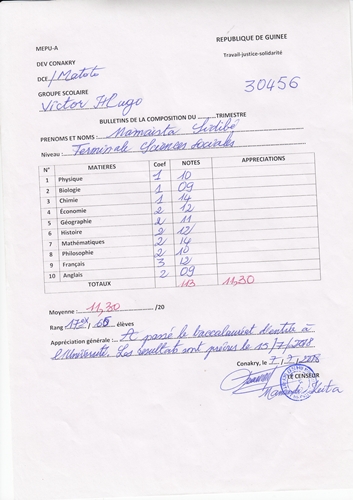 MEPU-A
REPUBLIQUE DE GUINEE
Travail-justice-solidarité
DEV CONAKRY
DCE/Matoto
30456
GROUPE SCOLAIRE
Victor Hugo
BULLETINS DE LA COMPOSITION DU TRIMESTRE
PRENOMS ET NOMS : Mamaissta Sidibé
Niveau : Terminale Sciences sociales
N° MATIERES Coef NOTES APPRECIATIONS
1 Physique 1 10
2 Biologie 1 09
3 Chimie 1 14
4 Économie 2 12
5 Géographie 2 11
6 Histoire 2 12
7 Mathématiques 2 14
8 Philosophie 2 10
9 Français 3 12
10 Anglais 2 09
TOTAUX 113 11,30
Moyenne : 11,30 /20
Rang 17ex 65 élèves
Appréciation générale : A passé le baccalauréat d'entrée à
l'Université. Les résultats sont prévus le 15/7/2018
Conakry, le 7/7/2018
LE CENSEUR
Keita